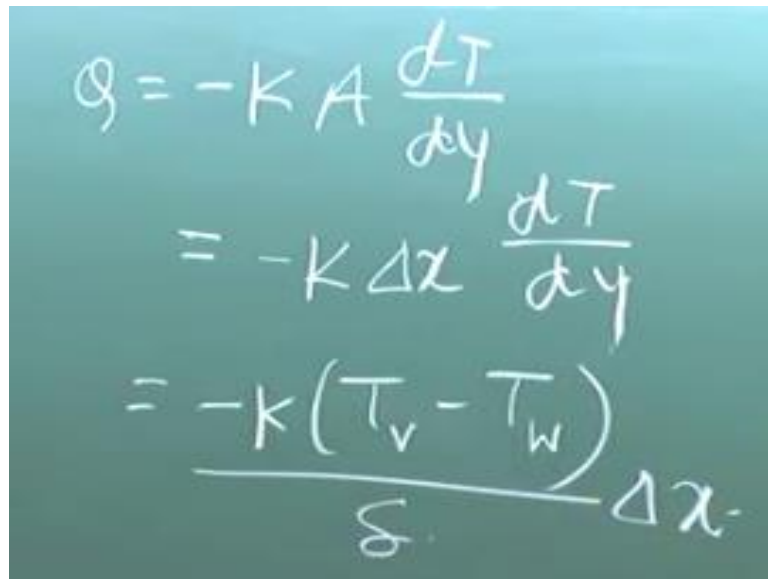 Q = -K A dT/dy
= -K Δx dT/dy
= -K(T_v - T_w)/δ Δx.